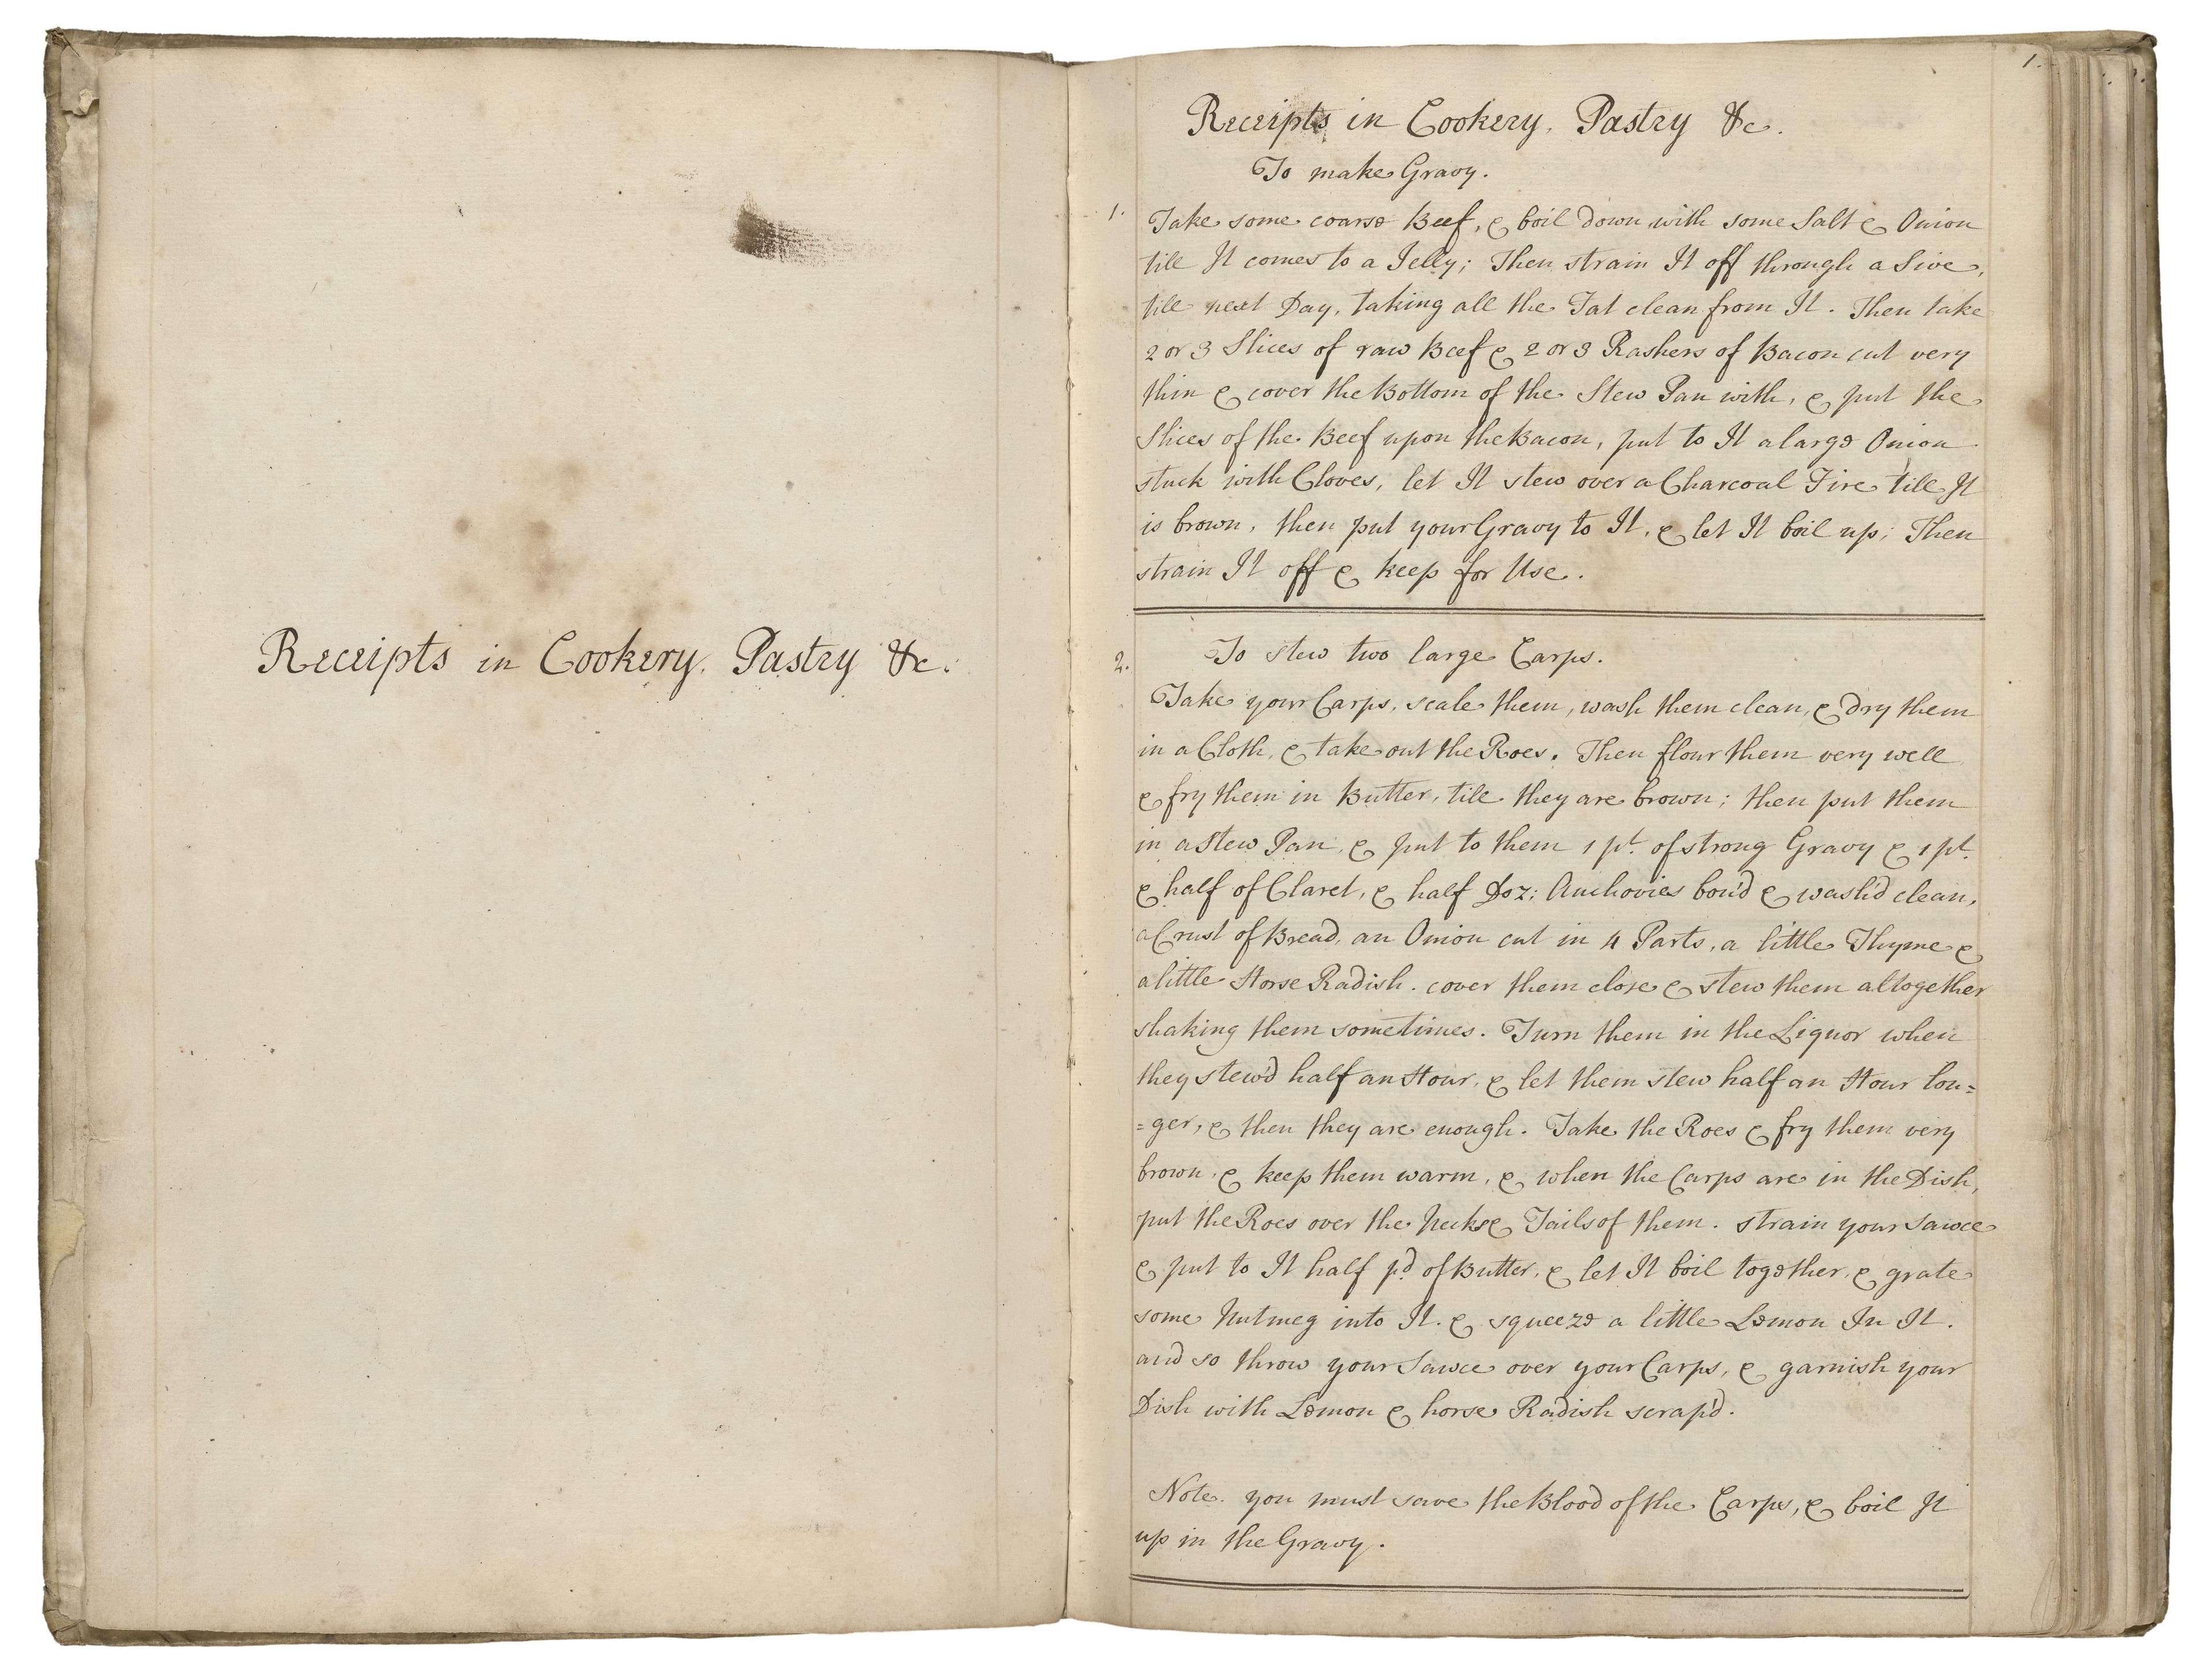 Receipts in Cookery. Pastry &c.
1.
Receipts in Cookery. Pastry &c.
To make Gravy.
1. Take some coarse Beef, & boil down with some Salt & Onion
till It comes to a Jelly; Then strain It off through a Sive,
till next Day, taking all the Fat clean from It. Then take
2 or 3 Slices of raw Beef & 2 or 3 Rashers of Bacon cut very
thin & cover the Bottom of the Stew Pan with, & put the
Slices of the Beef upon the Bacon, put to It a large Onion
stuck with Cloves, let It stew over a Charcoal Fire till It
is brown, then put your Gravy to It, & let It boil up; Then
strain It off & keep for Use.
2. To stew two large Carps.
Take your Carps, scale them, wash them clean, & dry them
in a Cloth, & take out the Roes. Then flour them very well
& fry them in Butter, till they are brown; then put them
in a Stew Pan, & put to them 1 pt. of strong Gravy & 1 pt.
& half of Claret, & half Doz: Anchovies bon'd & wash'd clean,
a Crust of Bread, an Onion cut in 4 Parts, a little Thyme &
a little Horse Radish. cover them close & stew them altogether
shaking them sometimes. Turn them in the Liquor when
they stew'd half an Hour, & let them stew half an Hour lon=
=ger, & then they are enough. Take the Roes & fry them very
brown, & keep them warm, & when the Carps are in the Dish,
put the Roes over the Necks & Tails of them. strain your Sawce
& put to It half pd of Butter, & let It boil together, & grate
some Nutmeg into It. & squeeze a little Lemon In It.
and so throw your Sawce over your Carps, & garnish your
Dish with Lemon & horse Radish scrap'd.
Note. you must save the Blood of the Carps, & boil It
up in the Gravy.